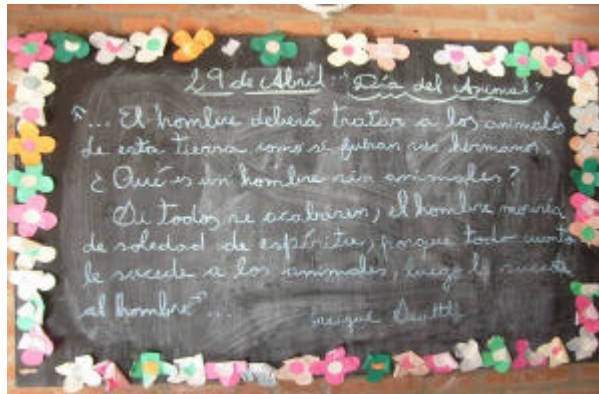 29 de Abril "Día del Animal"
"... El hombre deberá tratar a los animales
de esta tierra como si fueran sus hermanos.
¿Qué es un hombre sin animales?
Si todos se acabasen, el hombre moriría
de soledad de espíritu, porque todo cuanto
le sucede a los animales, luego le sucede
al hombre"...
Seattle